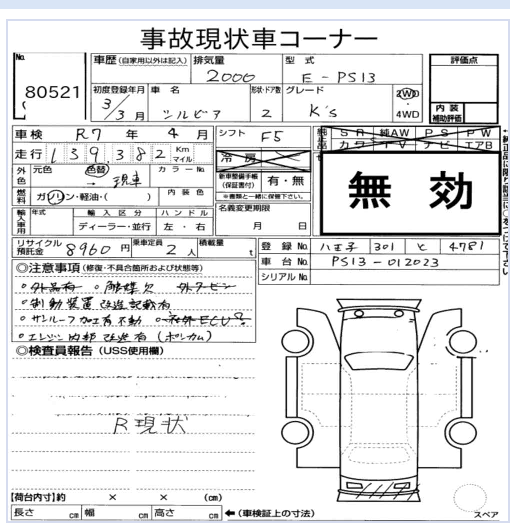 事故現状車コーナー
No. 80521
車歴 (自家用以外は記入) 排気量 2000 型式 E-PS13 評価点
初度登録年月 3/3月 車名 シルビア 形状・ドア数 2 グレード K's 2WD・4WD 内装補助評価
車検 R7年 4月 シフト F5 純正品 SR 純AW PS PW
走行 139,382 Km マイル 冷房 カワ TV ナビ エアB
外色 元色 色替 → 現車 カラーNo. 新車整備手帳(保証書付) 有・無
無効
燃料 ガソリン・軽油・( ) 内装色 ※書類と一緒に保管下さい。
輸入車用 年式 輸入区分 ディーラー・並行 ハンドル 左・右 名義変更期限 月 日
リサイクル預託金 8960円 乗車定員 2人 積載量 t 登録No. 八王子 301 と 4781
車台No. PS13-012023
シリアルNo.
◎注意事項 (修復・不具合箇所および状態等)
○外品有 ○触媒欠
○制動装置改造記載有
○サンルーフ加工有 不動
○エンジン内部改造有 (ポンカム)
◎検査員報告 (USS使用欄)
R現状
【荷台内寸】約 × × (cm)
長さ cm 幅 cm 高さ cm ←(車検証上の寸法)
スペア